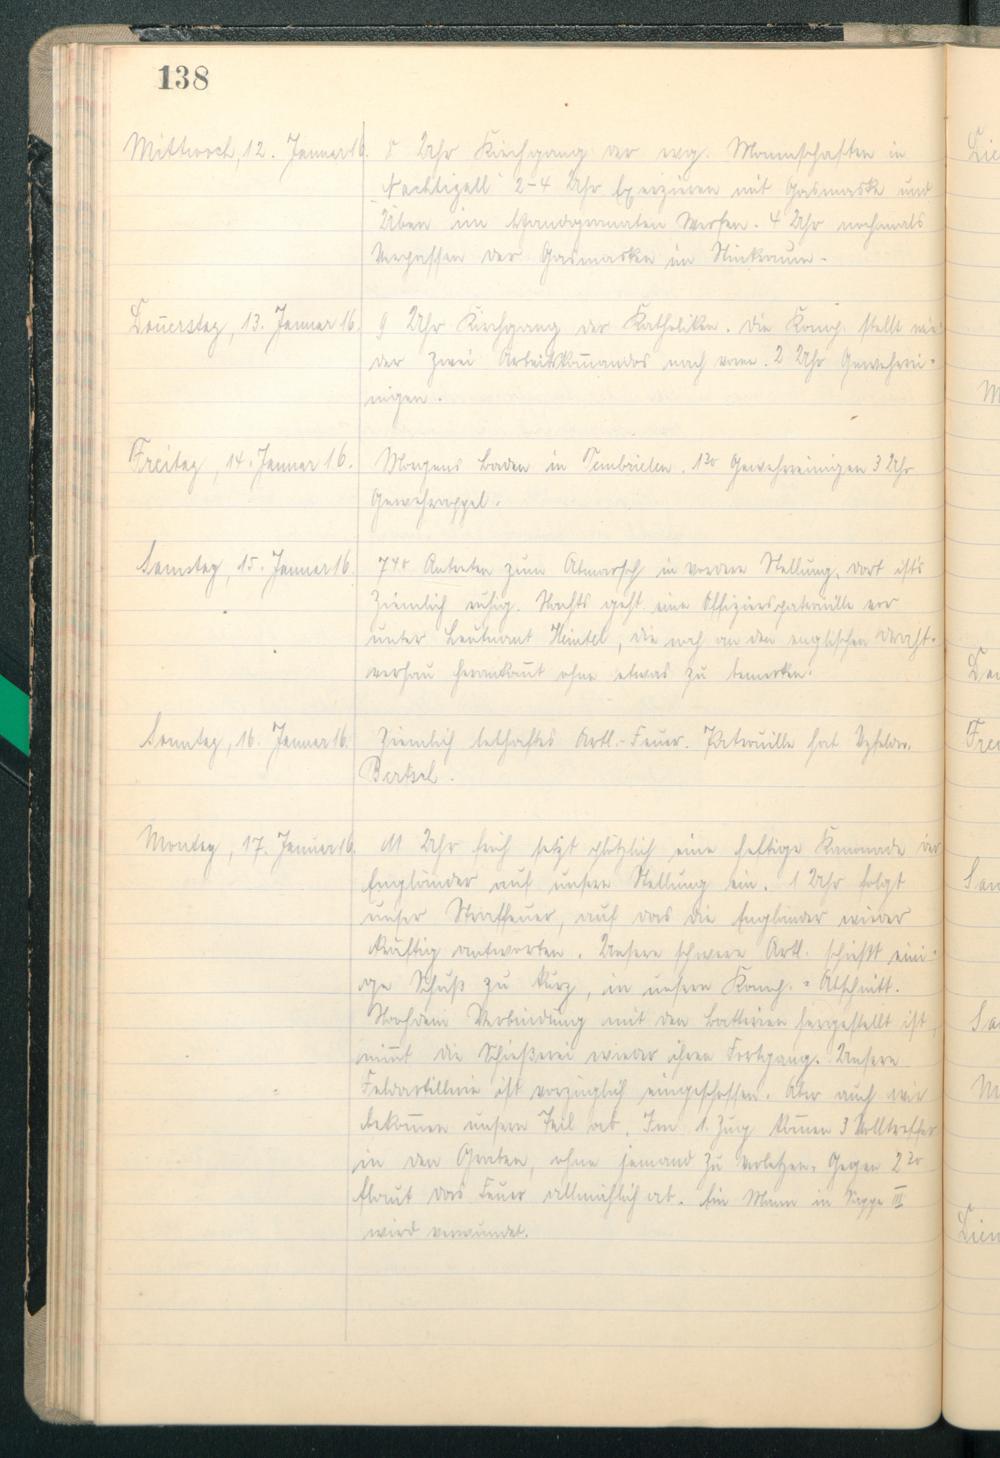 138
Mittwoch, 12. Januar 16. 8 Uhr Kirchgang der evg. Mannschaften in
„Nachtigall“ 2-4 Uhr Exerzieren mit Gasmaske und
Üben im Handgranaten Werfen. 4 Uhr nochmals
Verpassen der Gasmasken im Stinkraum.
Donerstag, 13. Januar 16. 9 Uhr Kirchgang der Katholiken. Die Komp. stellt wie-
der zwei Arbeitskomandos nach vorn. 2 Uhr Gewehrrei-
nigen.
Freitag, 14. Januar 16. Morgens Baden in Tenbrielen. 1³⁰ Gewehrreinigen 3 Uhr
Gewehrappel.
Samstag, 15. Januar 16. 7⁴⁰ Antreten zum Abmarsch in vordere Stellung, dort ists
ziemlich ruhig. Nachts geht eine Offizierspatrouille vor
unter Leutnant Heintel, die nach an den englischen Draht-
verhau herankomt ohne etwas zu bemerken.
Sonntag, 16. Januar 16. Ziemlich lebhaftes Artl.-Feuer. Patrouille hat Vzfeldw.
Bertsch.
Montag, 17. Januar 16. 11 Uhr früh setzt plötzlich eine heftige Kanonade der
Engländer auf unsere Stellung ein. 1 Uhr folgt
unser Straffeuer, auf das die Engländer wieder
kräftig antworten. Unsere schwere Artl. schießt eini-
ge Schuß zu kurz, in unsern Komp.-Abschnitt.
Nachdem Verbindung mit den Batterien hergestellt ist,
nimt die Schießerei wieder ihren Fortgang. Unsere
Feldartillerie ist vorzüglich eingeschossen. Aber auch wir
bekomen unsern Teil ab. Im 1. Zug komen 3 Volltreffer
in den Graben, ohne jemand zu verletzen. Gegen 2²⁰
flaut das Feuer allmählich ab. Ein Mann in Sappe III
wird verwundet.